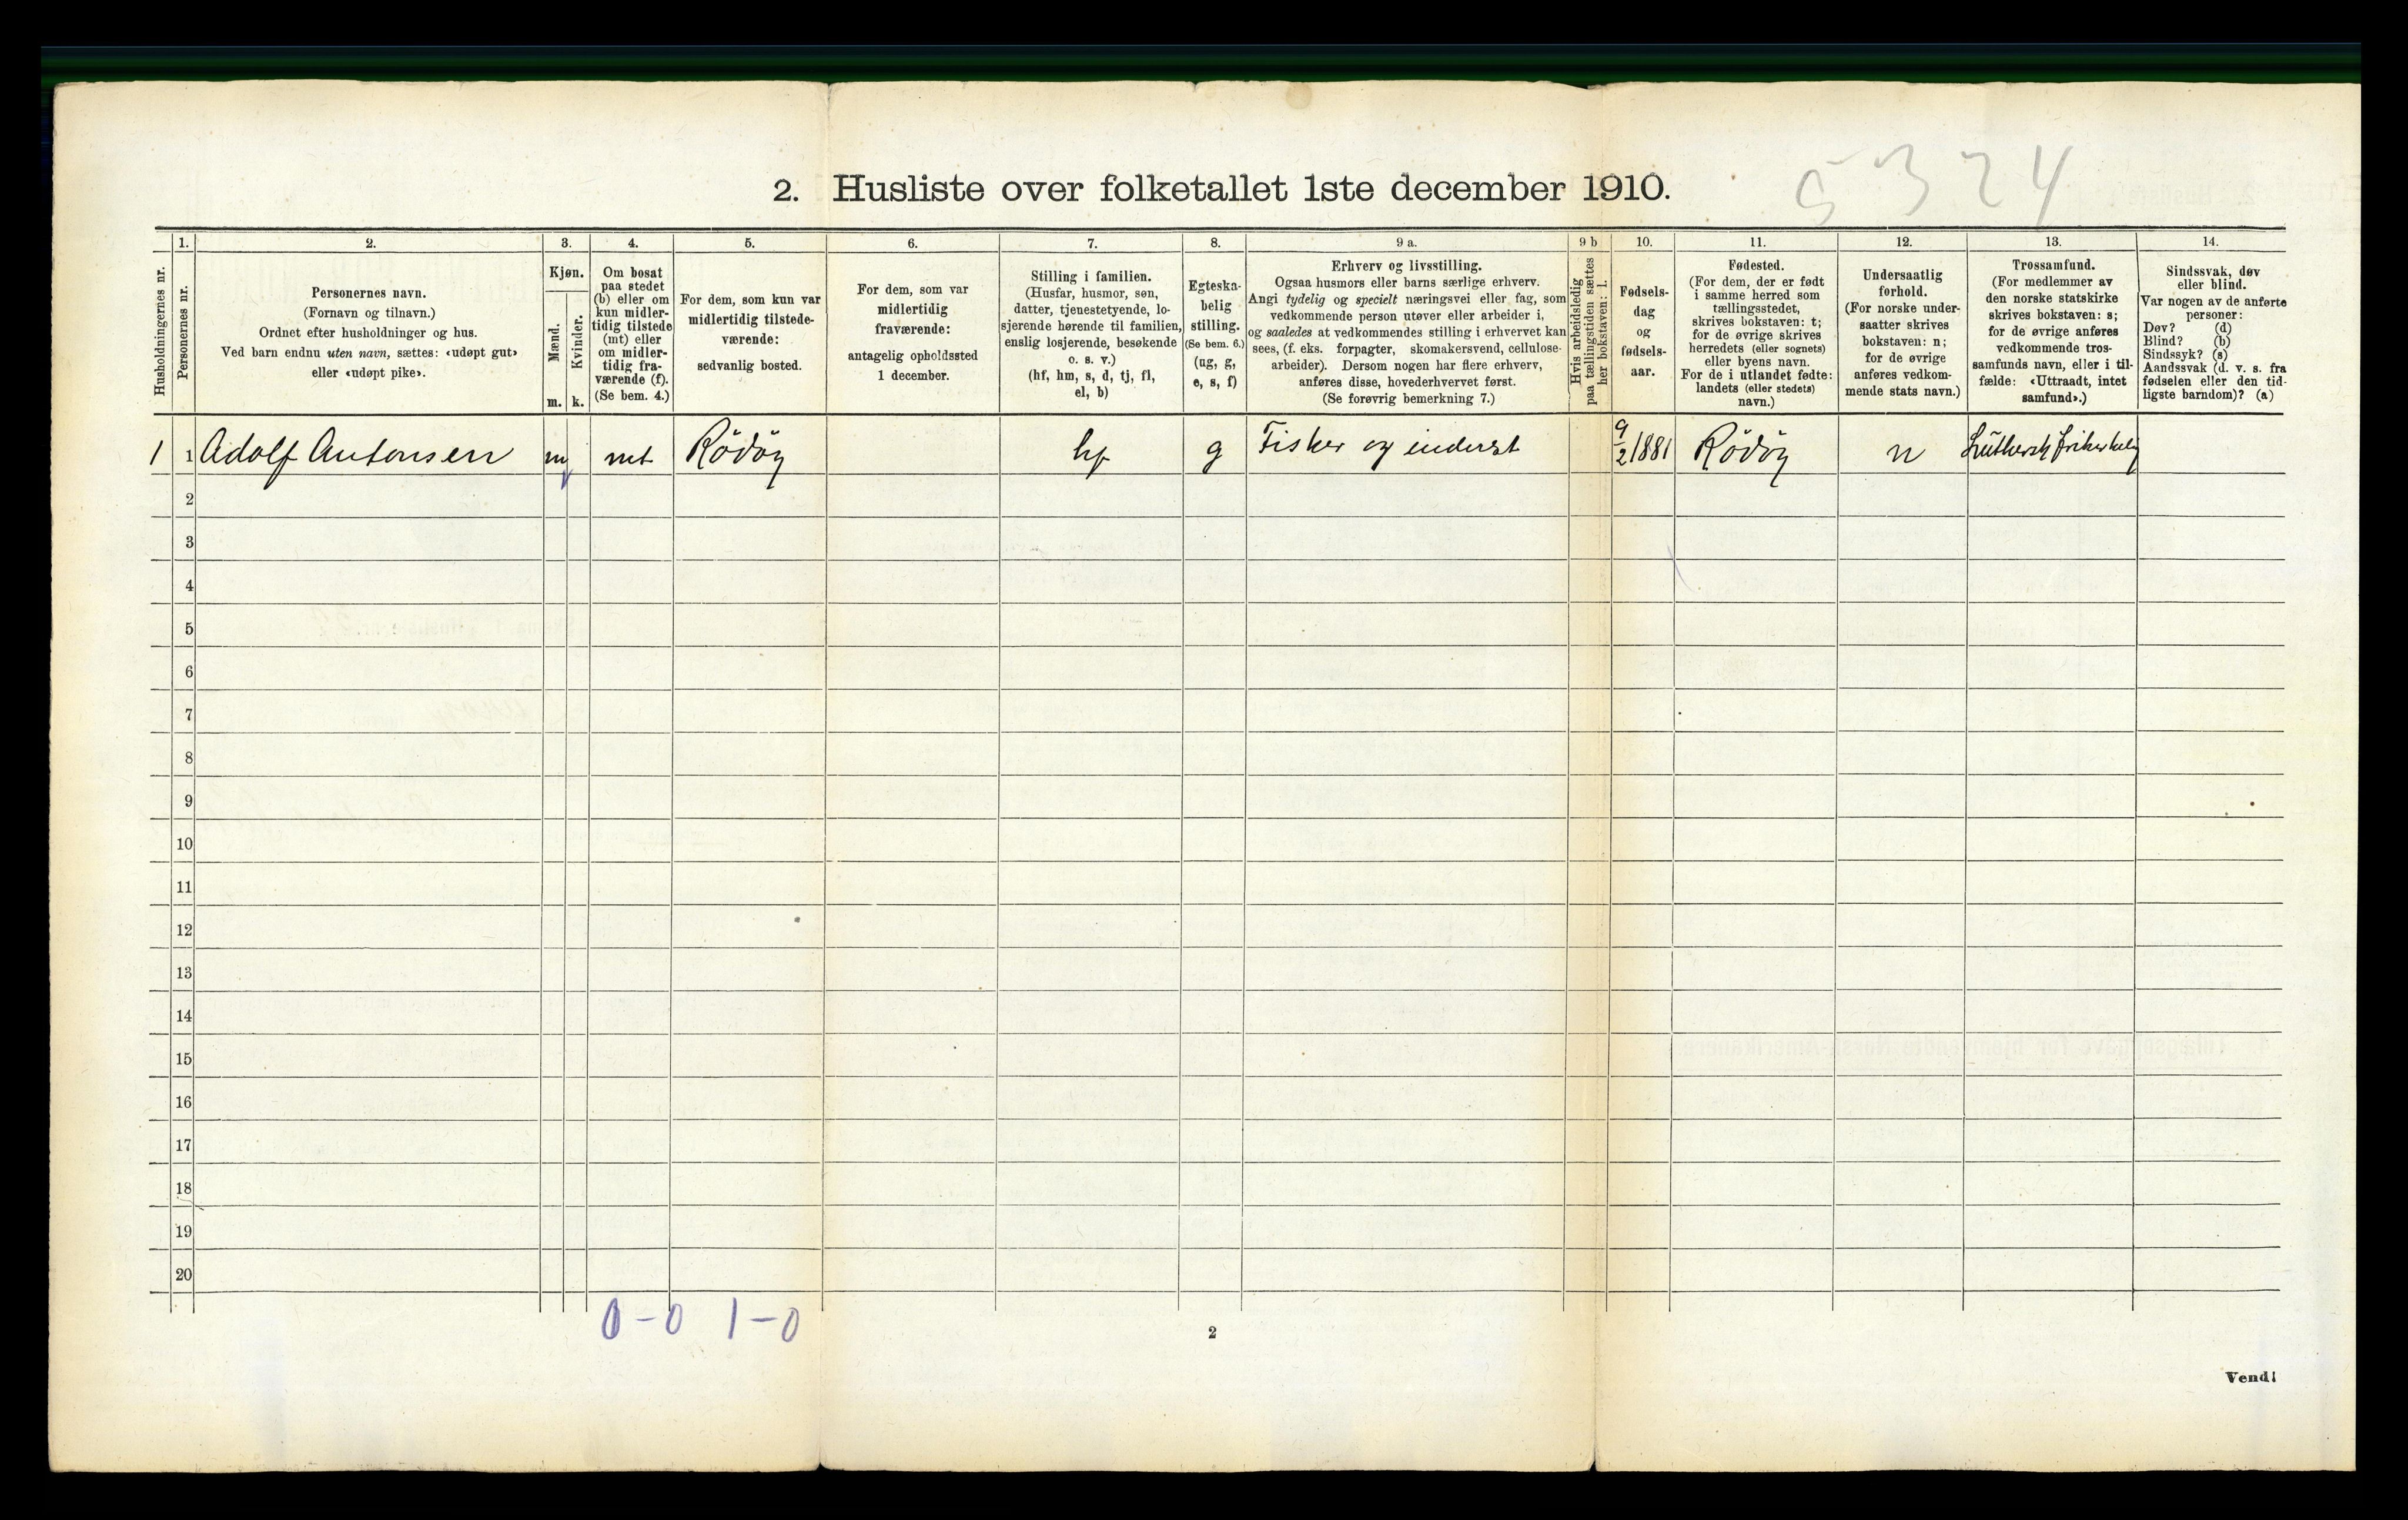 5324
2. Husliste over folketallet 1ste december 1910.
Husholdningernes nr.
1.
Personernes nr.
2.
Personernes navn.
(Fornavn og tilnavn.)
Ordnet efter husholdninger og hus.
Ved barn endnu uten navn, sættes: «udøpt gut»
eller «udøpt pike».
3.
Kjøn.
Mænd.
Kvinder.
m. k.
4.
Om bosat
paa stedet
(b) eller om
kun midler-
tidig tilstede
(mt) eller
om midler-
tidig fra-
værende (f).
(Se bem. 4.)
5.
For dem, som kun var
midlertidig tilstede-
værende:
sedvanlig bosted.
6.
For dem, som var
midlertidig
fraværende:
antagelig opholdssted
1 december.
7.
Stilling i familien.
(Husfar, husmor, søn,
datter, tjenestetyende, lo-
sjerende hørende til familien,
enslig losjerende, besøkende
o. s. v.)
(hf, hm, s, d, tj, fl,
el, b)
8.
Egteska-
belig
stilling.
(Se bem. 6.)
(ug, g,
e, s, f)
9 a.
Erhverv og livsstilling.
Ogsaa husmors eller barns særlige erhverv.
Angi tydelig og specielt næringsvei eller fag, som
vedkommende person utøver eller arbeider i,
og saaledes at vedkommendes stilling i erhvervet kan
sees, (f. eks. forpagter, skomakersvend, cellulose-
arbeider). Dersom nogen har flere erhverv,
anføres disse, hovederhvervet først.
(Se forøvrig bemerkning 7.)
9 b
Hvis arbeidsledig
paa tællingstiden sættes
her bokstaven: l.
10.
Fødsels-
dag
og
fødsels-
aar.
11.
Fødested.
(For dem, der er født
i samme herred som
tællingsstedet,
skrives bokstaven: t;
for de øvrige skrives
herredets (eller sognets)
eller byens navn.
For de i utlandet fødte:
landets (eller stedets)
navn.)
12.
Undersaatlig
forhold.
(For norske under-
saatter skrives
bokstaven: n;
for de øvrige
anføres vedkom-
mende stats navn.)
13.
Trossamfund.
(For medlemmer av
den norske statskirke
skrives bokstaven: s;
for de øvrige anføres
vedkommende tros-
samfunds navn, eller i til-
fælde: «Uttraadt, intet
samfund».)
14.
Sindssvak, døv
eller blind.
Var nogen av de anførte
personer:
Døv? (d)
Blind? (b)
Sindssyk? (s)
Aandssvak (d. v. s. fra
fødselen eller den tid-
ligste barndom)? (a)
1 1 Adolf Antonsen m mt Rödöy hf g Fisker og inderst 9/2 1881 Rödöy n Luthersk frikirkelig
2
3
4
5
6
7
8
9
10
11
12
13
14
15
16
17
18
19
20
0-0 1-0
2
Vend!